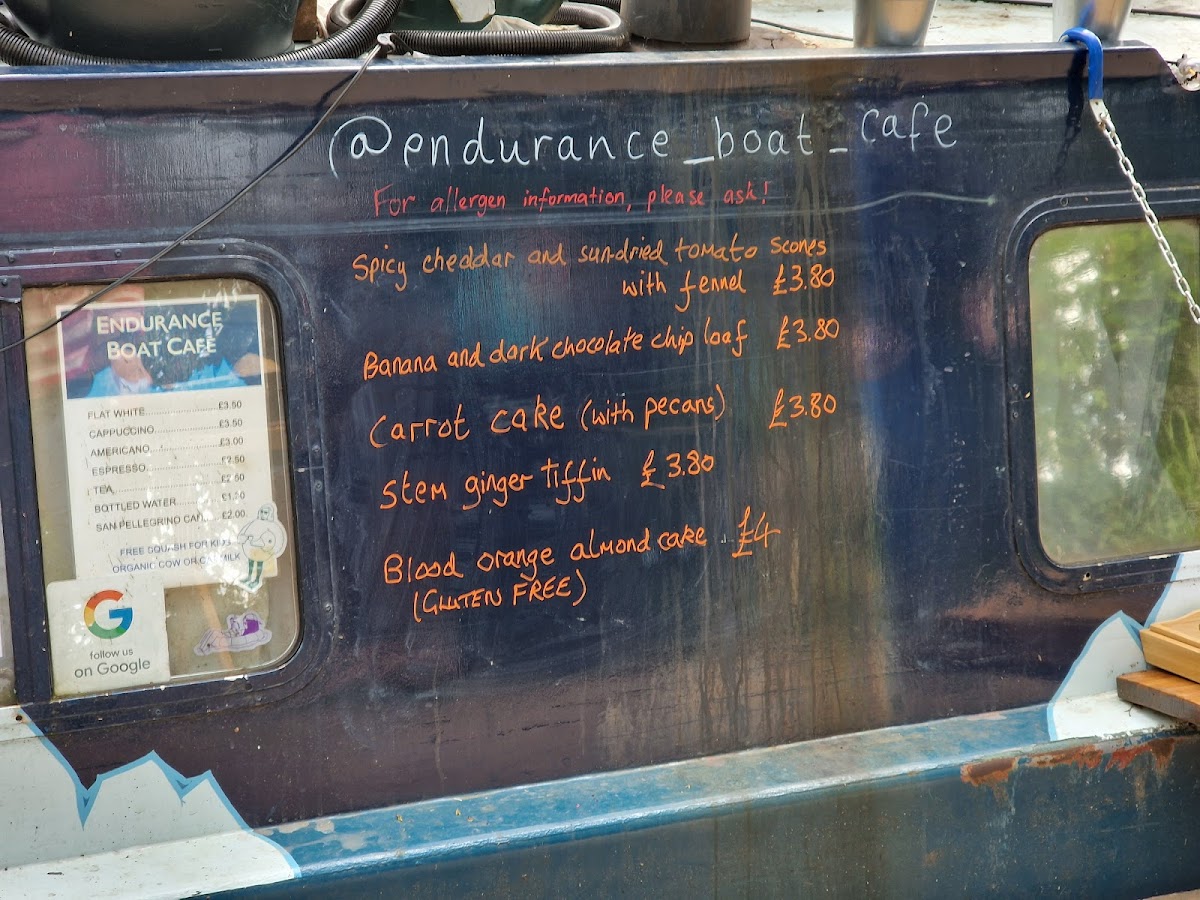 @endurance_boat_cafe
For allergen information, please ask!
Spicy cheddar and sundried tomato scones
with fennel £3.80
Banana and dark chocolate chip loaf £3.80
Carrot cake (with pecans) £3.80
Stem ginger tiffin £3.80
Blood orange almond cake £4
(GLUTEN FREE)
ENDURANCE
BOAT CAFE
FLAT WHITE £3.50
CAPPUCCINO £3.50
AMERICANO £3.00
ESPRESSO £2.50
TEA
BOTTLED WATER
SAN PELLEGRINO CAN £2.00
FREE SQUASH FOR KIDS
ORGANIC COW OR OAT MILK
G
follow us
on Google